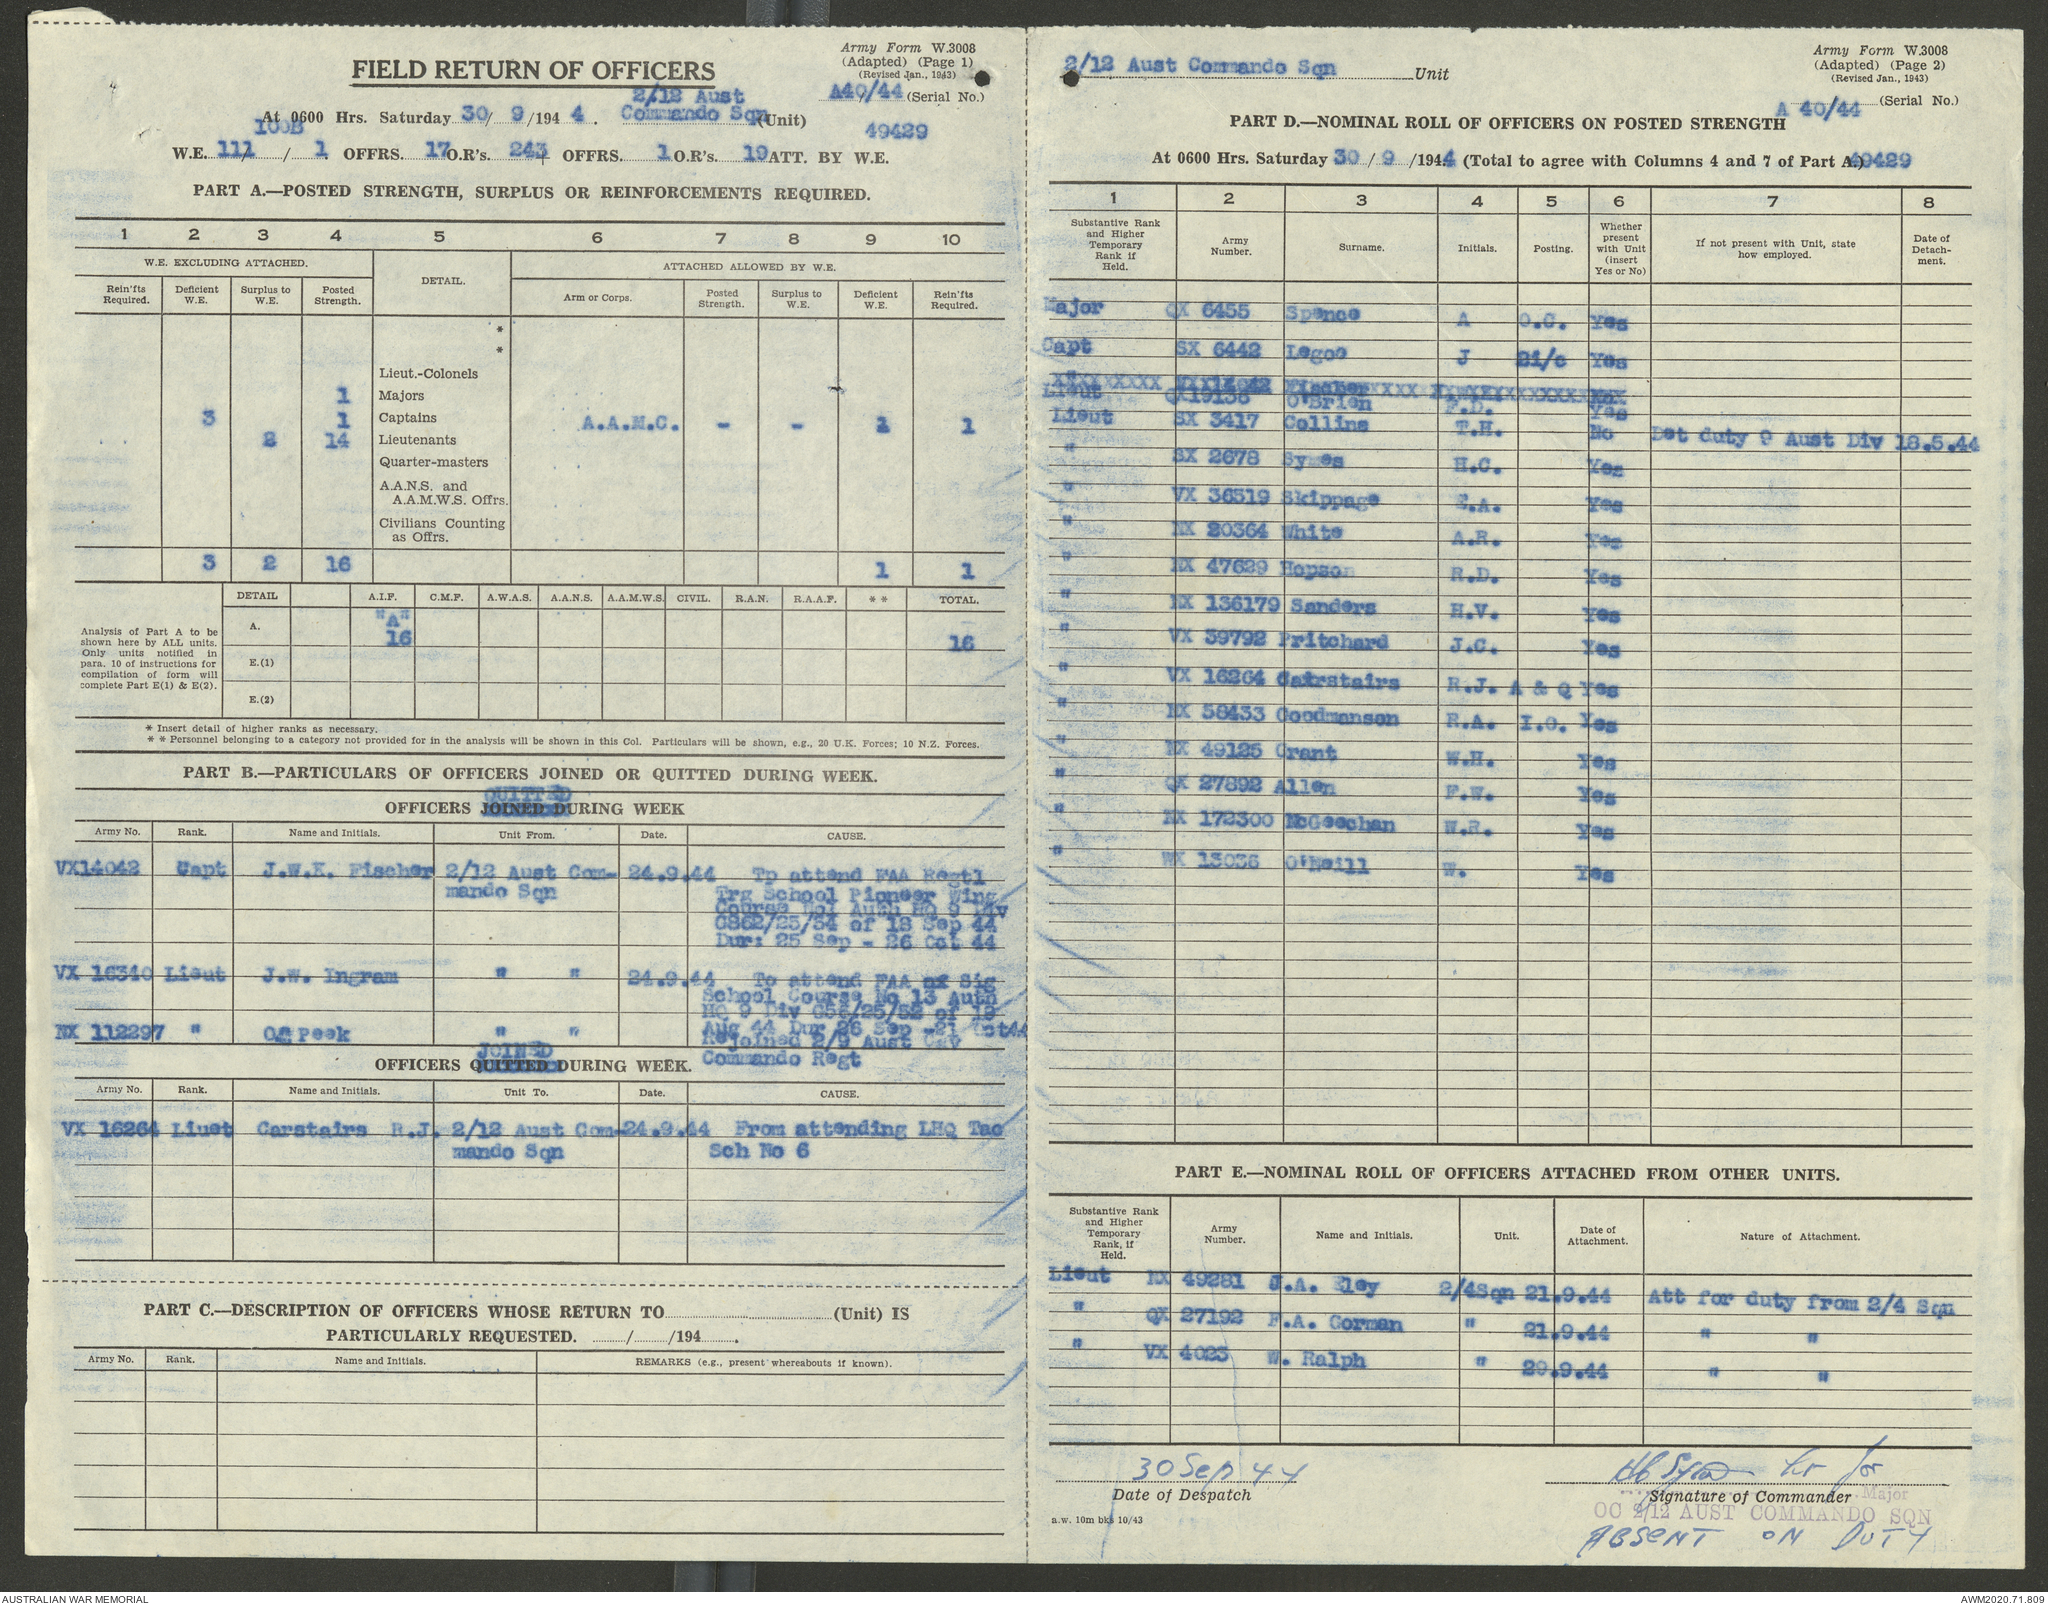 Army Form W.3008
(Adapted) (Page 1)
(Revised Jan., 1943)
FIELD RETURN OF OFFICERS
A40/44 (Serial No.)
2/12 Aust
At 0600 Hrs. Saturday 30/ 9 /194 4 . Commando Sqn (Unit)
49429
100B
W.E. 111/ / 1 OFFRS. 17 O.R's. 243 + OFFRS. 1 O.R's. 19 ATT. BY W.E.
PART A.—POSTED STRENGTH, SURPLUS OR REINFORCEMENTS REQUIRED.
1 2 3 4 5 6 7 8 9 10
W.E. EXCLUDING ATTACHED. DETAIL. ATTACHED ALLOWED BY W.E.
Rein'fts Required. Deficient W.E. Surplus to W.E. Posted Strength. Arm or Corps. Posted Strength. Surplus to W.E. Deficient W.E. Rein'fts Required.
*
*
Lieut.-Colonels
1 Majors
3 1 Captains A.A.M.C. - - 1 1
2 14 Lieutenants
Quarter-masters
A.A.N.S. and
A.A.M.W.S. Offrs.
Civilians Counting
as Offrs.
3 2 16 1 1
DETAIL A.I.F. C.M.F. A.W.A.S. A.A.N.S. A.A.M.W.S. CIVIL. R.A.N. R.A.A.F. * * TOTAL.
Analysis of Part A to be
shown here by ALL units.
Only units notified in
para. 10 of instructions for
compilation of form will
complete Part E(1) & E(2).
A. "A"
16 16
E.(1)
E.(2)
* Insert detail of higher ranks as necessary.
* * Personnel belonging to a category not provided for in the analysis will be shown in this Col. Particulars will be shown, e.g., 20 U.K. Forces; 10 N.Z. Forces.
PART B.—PARTICULARS OF OFFICERS JOINED OR QUITTED DURING WEEK.
QUITTED
OFFICERS JOINED DURING WEEK
Army No. Rank. Name and Initials. Unit From. Date. CAUSE.
VX14042 Capt J.W.K. Fischer 2/12 Aust Com- 24.9.44 Tp attend FAA Regtl
mando Sqn Trg School Pioneer Wing
Course No1 Auth HQ 9 Div
G862/25/34 of 18 Sep 44
Dur: 25 Sep - 26 Oct 44
VX 16340 Lieut J.W. Ingram " " 24.9.44 To attend FAA Sig
School Course No 13 Auth
HQ 9 Div G56/25/S2 of 19
Aug 44 Dur 26 Sep -21 Oct44
NX 112297 " Peek " " Rejoined 2/9 Aust Cav
Commando Regt
JOINED
OFFICERS QUITTED DURING WEEK.
Army No. Rank. Name and Initials. Unit To. Date. CAUSE.
VX 16264 Liuet Carstairs R.J. 2/12 Aust Com- 24.9.44 From attending LHQ Tac
mando Sqn Sch No 6
PART C.—DESCRIPTION OF OFFICERS WHOSE RETURN TO (Unit) IS
PARTICULARLY REQUESTED. / /194 .
Army No. Rank. Name and Initials. REMARKS (e.g., present whereabouts if known).
2/12 Aust Commando Sqn Unit
Army Form W.3008
(Adapted) (Page 2)
(Revised Jan., 1943)
A 40/44 (Serial No.)
PART D.—NOMINAL ROLL OF OFFICERS ON POSTED STRENGTH
At 0600 Hrs. Saturday 30 / 9 /1944 (Total to agree with Columns 4 and 7 of Part A.) 49429
1 2 3 4 5 6 7 8
Substantive Rank and Higher Temporary Rank if Held. Army Number. Surname. Initials. Posting. Whether present with Unit (insert Yes or No) If not present with Unit, state how employed. Date of Detachment.
Major QX 6455 Spence A O.C. Yes
Capt SX 6442 Legoe J 2i/c Yes
Lieut QX19136 O'Brien F.D. Yes
Lieut SX 3417 Collins T.H. No Det duty 9 Aust Div 18.5.44
" SX 2678 Symes H.C. Yes
" VX 36519 Skippage E.A. Yes
" NX 20364 White A.R. Yes
" NX 47629 Hopson R.D. Yes
" NX 136179 Sanders H.V. Yes
" VX 39792 Pritchard J.C. Yes
" VX 16264 Carstairs R.J. A & Q Yes
" NX 58433 Goodmanson R.A. I.O. Yes
" NX 49125 Grant W.H. Yes
" QX 27892 Allen F.W. Yes
" NX 172300 McGeechan W.R. Yes
" WX 13036 O'Neill W. Yes
PART E.—NOMINAL ROLL OF OFFICERS ATTACHED FROM OTHER UNITS.
Substantive Rank and Higher Temporary Rank, if Held. Army Number. Name and Initials. Unit. Date of Attachment. Nature of Attachment.
Lieut NX 49281 J.A. Eley 2/4Sqn 21.9.44 Att for duty from 2/4 Sqn
" QX 27192 F.A. Gorman " 21.9.44 " "
" VX 4023 W. Ralph " 29.9.44 " "
30 Sep 44
Date of Despatch
HC Symes Lt for
Signature of Commander
Major
OC 2/12 AUST COMMANDO SQN
ABSENT ON DUTY
a.w. 10m bks 10/43
AUSTRALIAN WAR MEMORIAL
AWM2020.71.809